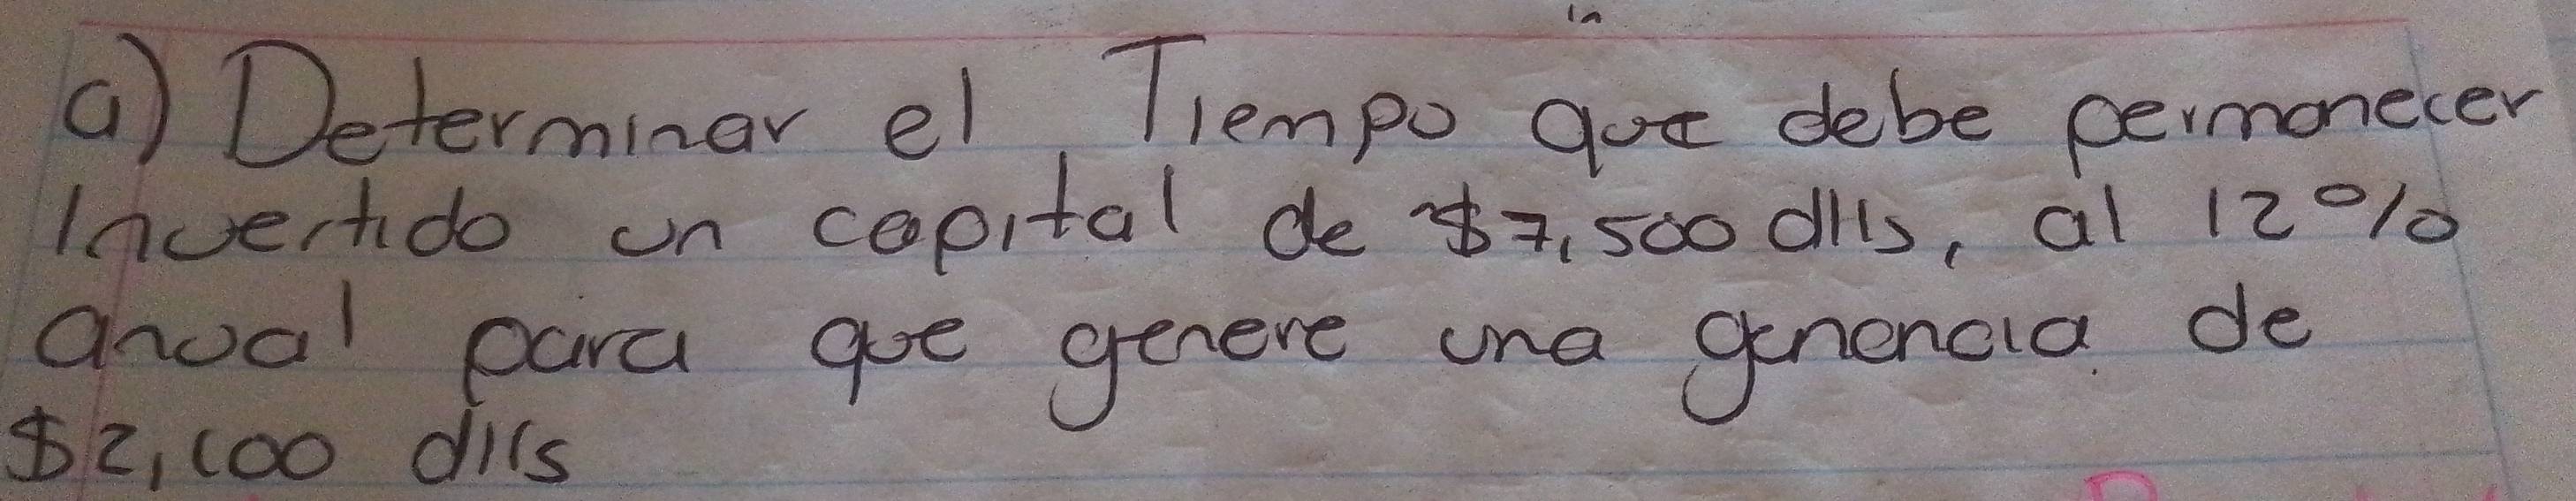 in
a) Determinar el Tiempo que debe permanecer
Invertido un capital de $7,500 dlls, al 12%
anual para que genere una ganancia de
$2,100 dlls